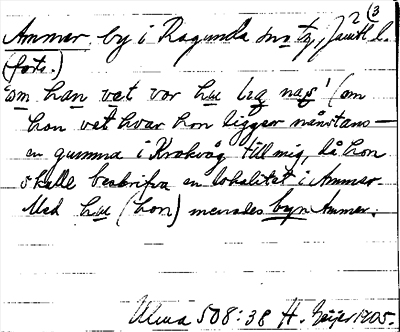 2 (3
Ammer. by i Ragunda sn o tg, Jämtl l.
(forts.)
'om han vet vor hu ligg naṣ' (om
hon vet hvar hon ligger nånstans —
en gumma i Krokvåg till mig, då hon
skulle beskrifva en lokalitet i Ammer
Med hu (hon) menades byn Ammer.
Ulma 508:38 H. Geijer 1905.